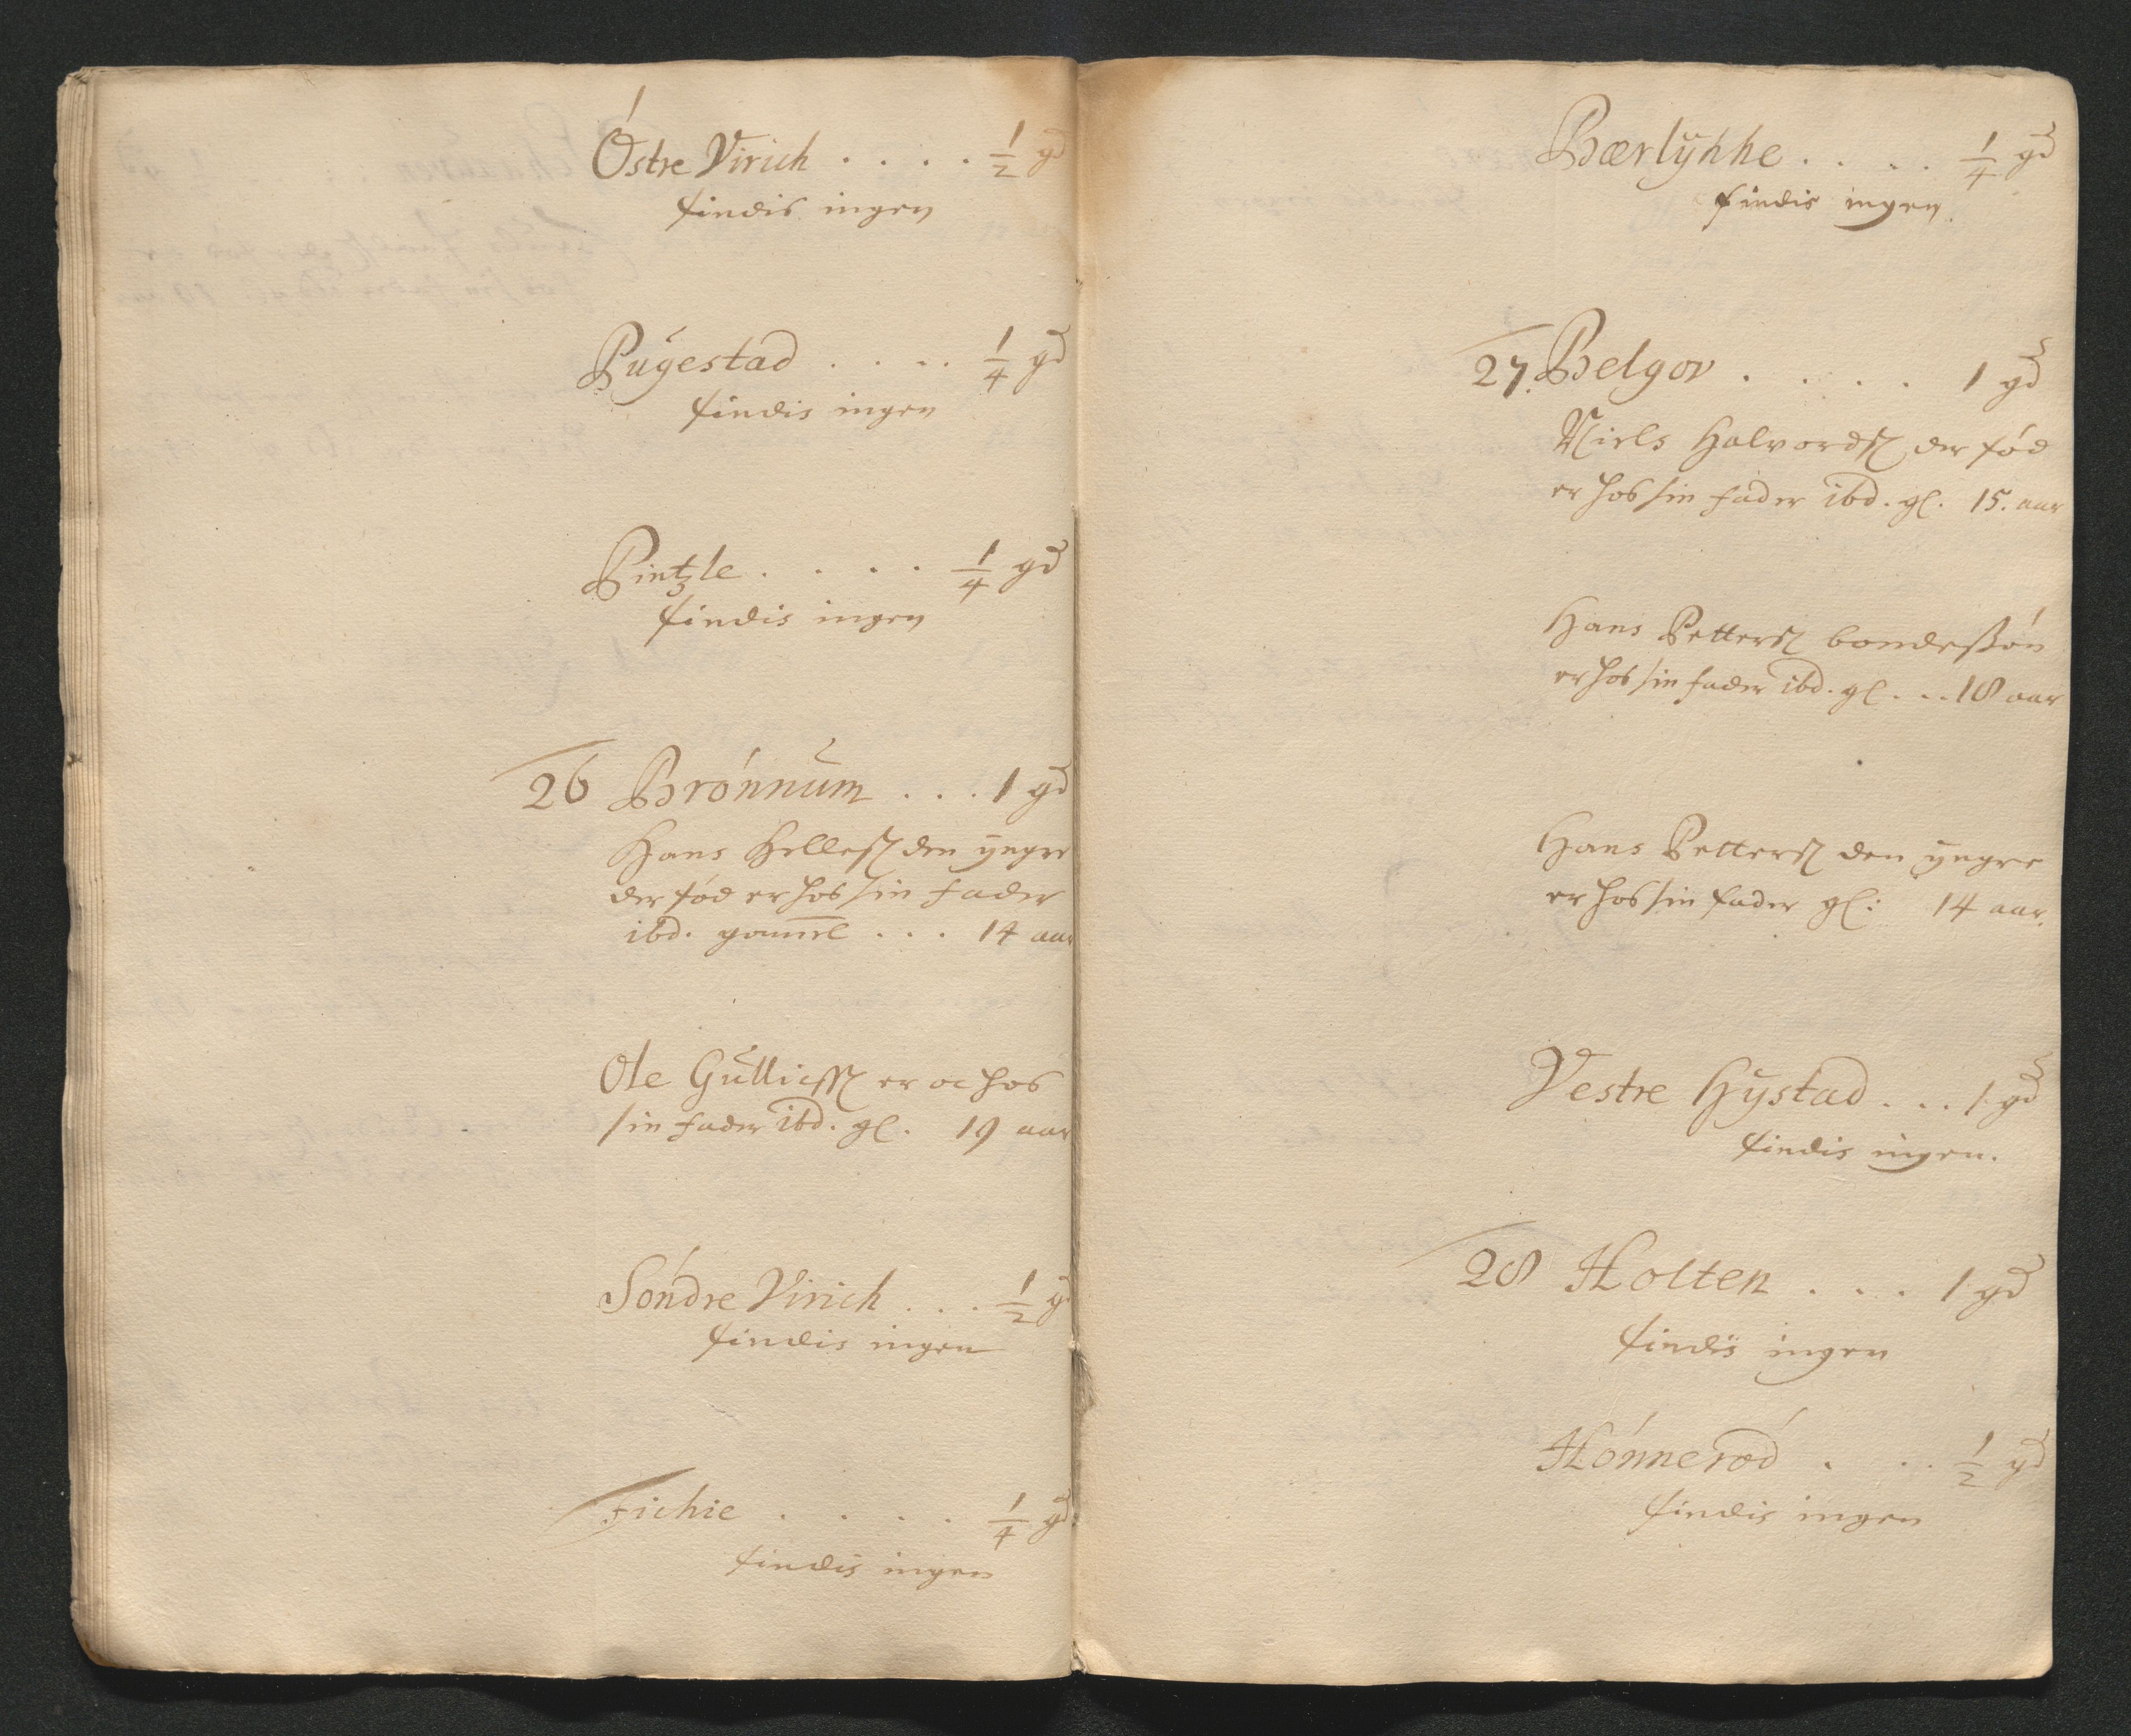 Óstre Virich . . . . 1/2 gd
findis ingen
Pugestad . . . . 1/4 gd
findis ingen
Pintzle . . . . 1/4 gd
findis ingen
26 Brónnum . . . 1 gd
Hans Helleß den yngre
der fód er hos sin fader
ibd. gammel . . . 14 aar
Ole Gullichß er oc hos
sin fader ibd. gl. 19 aar
Sóndre Virich . . . 1/2 gd
findis ingen
Fichie . . . . 1/4 gd
findis ingen
Bærlykke . . . . 1/4 gd
findis ingen.
27. Belgov . . . . 1 gd
Niels Halvordß der fód
er hos sin fader ibd. gl. 15. aar
Hans Petterß bondesón
er hos sin fader ibd. gl. . . 18 aar
Hans Petterß den yngre
er hos sin fader gl: 14 aar.
Vestre Hystad . . . 1. gd
findis ingen.
28 Holten . . . 1 gd
findis ingen
Hónneród . . . 1/2 gd
findis ingen